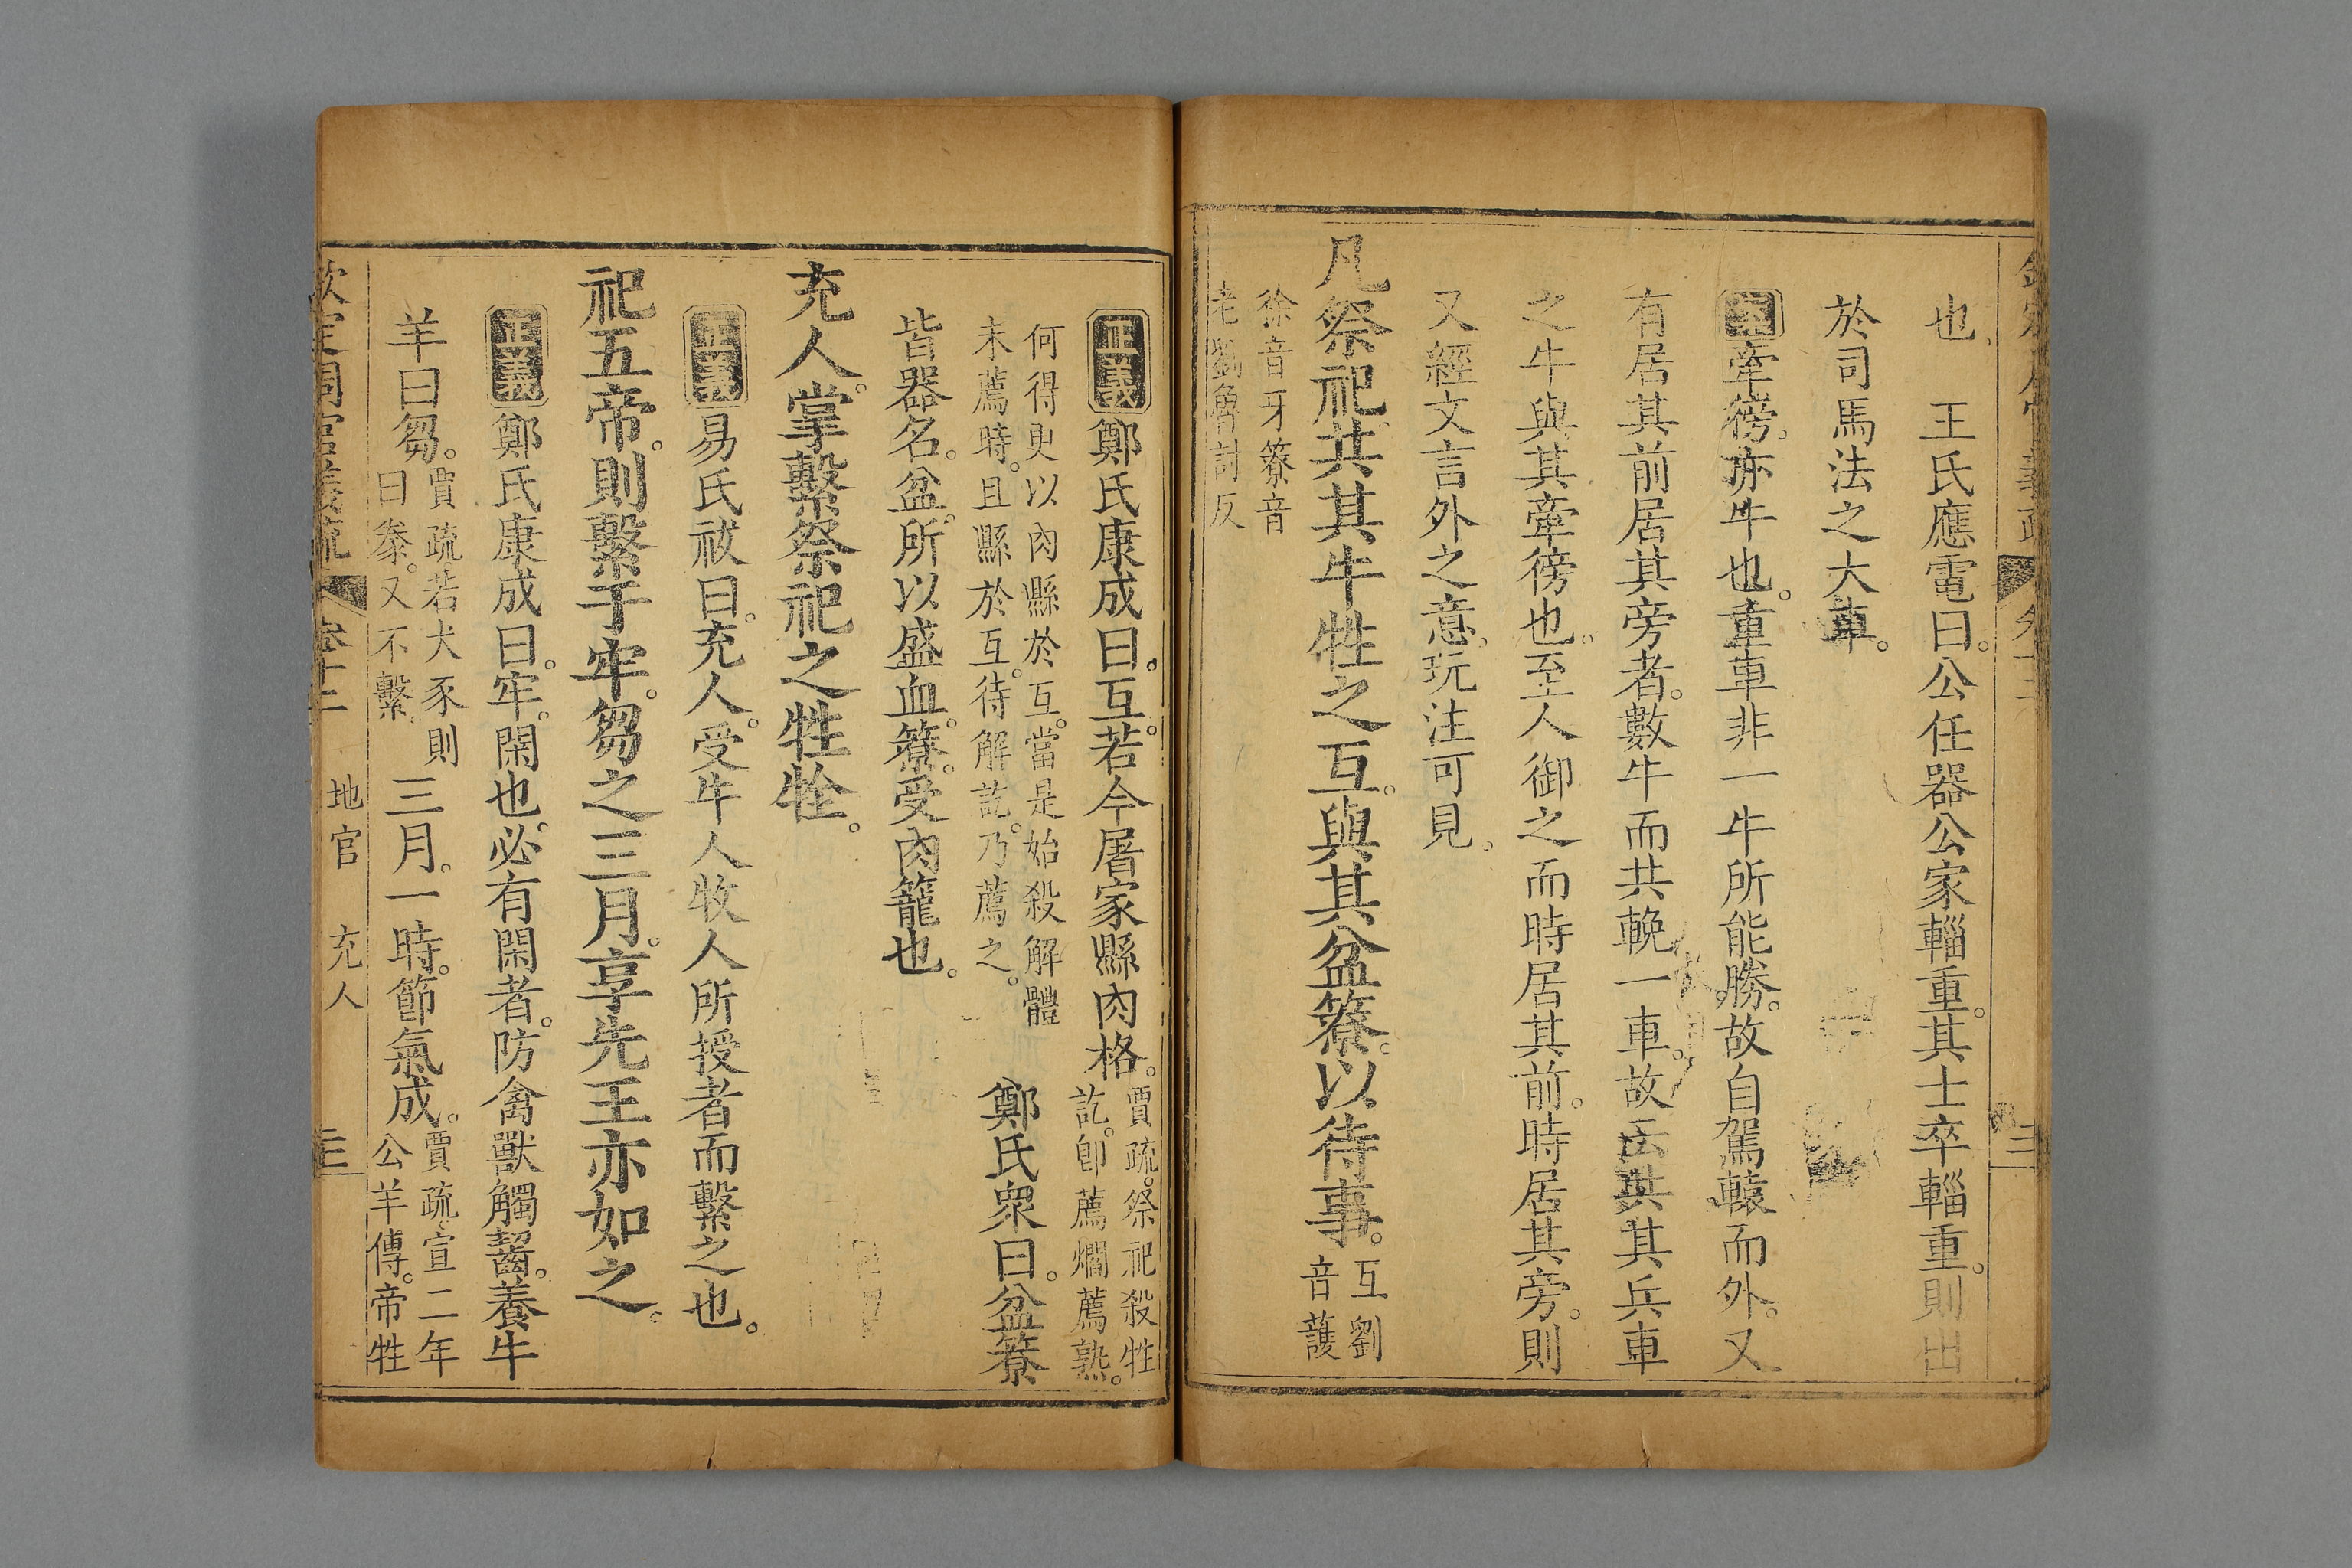 也 王氏應電曰公任器公家輜重其士卒輜重則出
於司馬法之大車
案牽徬亦牛也重車非一牛所能勝故自駕轅而外又
有居其前居其旁者數牛而共輓一車故云共其兵車
之牛與其牽徬也至人御之而時居其前時居其旁則
又經文言外之意玩注可見
凡祭祀共其牛牲之互與其盆簝以待事互劉音護
徐音牙簝音老劉魯討反
正義鄭氏康成曰互若今屠家縣肉格賈疏祭祀殺牲訖卽薦爓薦熟
何得更以肉縣於互當是始殺解體未薦時且縣於互待解訖乃薦之 鄭氏衆曰盆簝
皆器名盆所以盛血簝受肉籠也
充人掌繫祭祀之牲牷
正義易氏祓曰充人受牛人牧人所授者而繫之也
祀五帝則繫于牢芻之三月享先王亦如之
正義鄭氏康成曰牢閑也必有閑者防禽獸觸齧養牛
羊曰芻賈疏若犬豕則曰豢又不繫 三月一時節氣成賈疏宣二年公羊傳帝牲
欽定周官義疏 卷十二 地官 充人